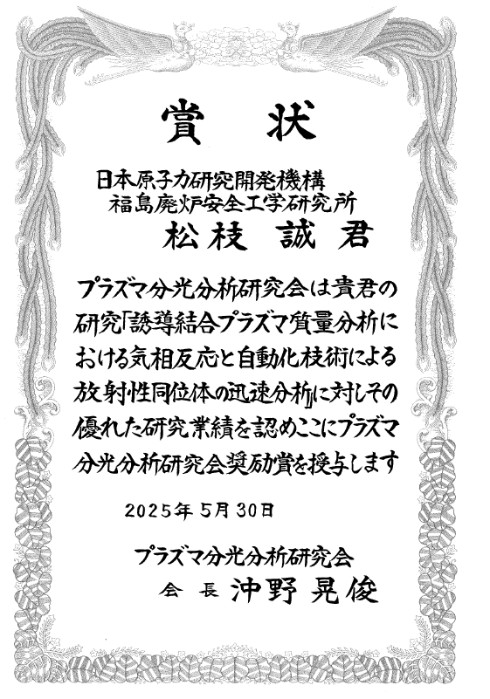 賞状
日本原子力研究開発機構
福島廃炉安全工学研究所
松枝 誠 君
プラズマ分光分析研究会は貴君の
研究「誘導結合プラズマ質量分析に
おける気相反応と自動化技術による
放射性同位体の迅速分析」に対しその
優れた研究業績を認めここにプラズマ
分光分析研究会奨励賞を授与します
2025年5月30日
プラズマ分光分析研究会
会長 沖野晃俊